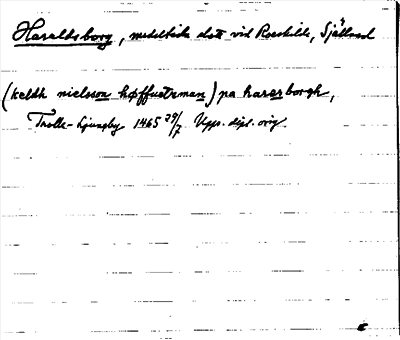 Haraldsborg, medeltida slot vid Roeskilde, Själland
(keldh nielsson høffuetzman) pa hararborgh,
Trolle-Ljungby 1465 29/7 Upps. dipl. orig.